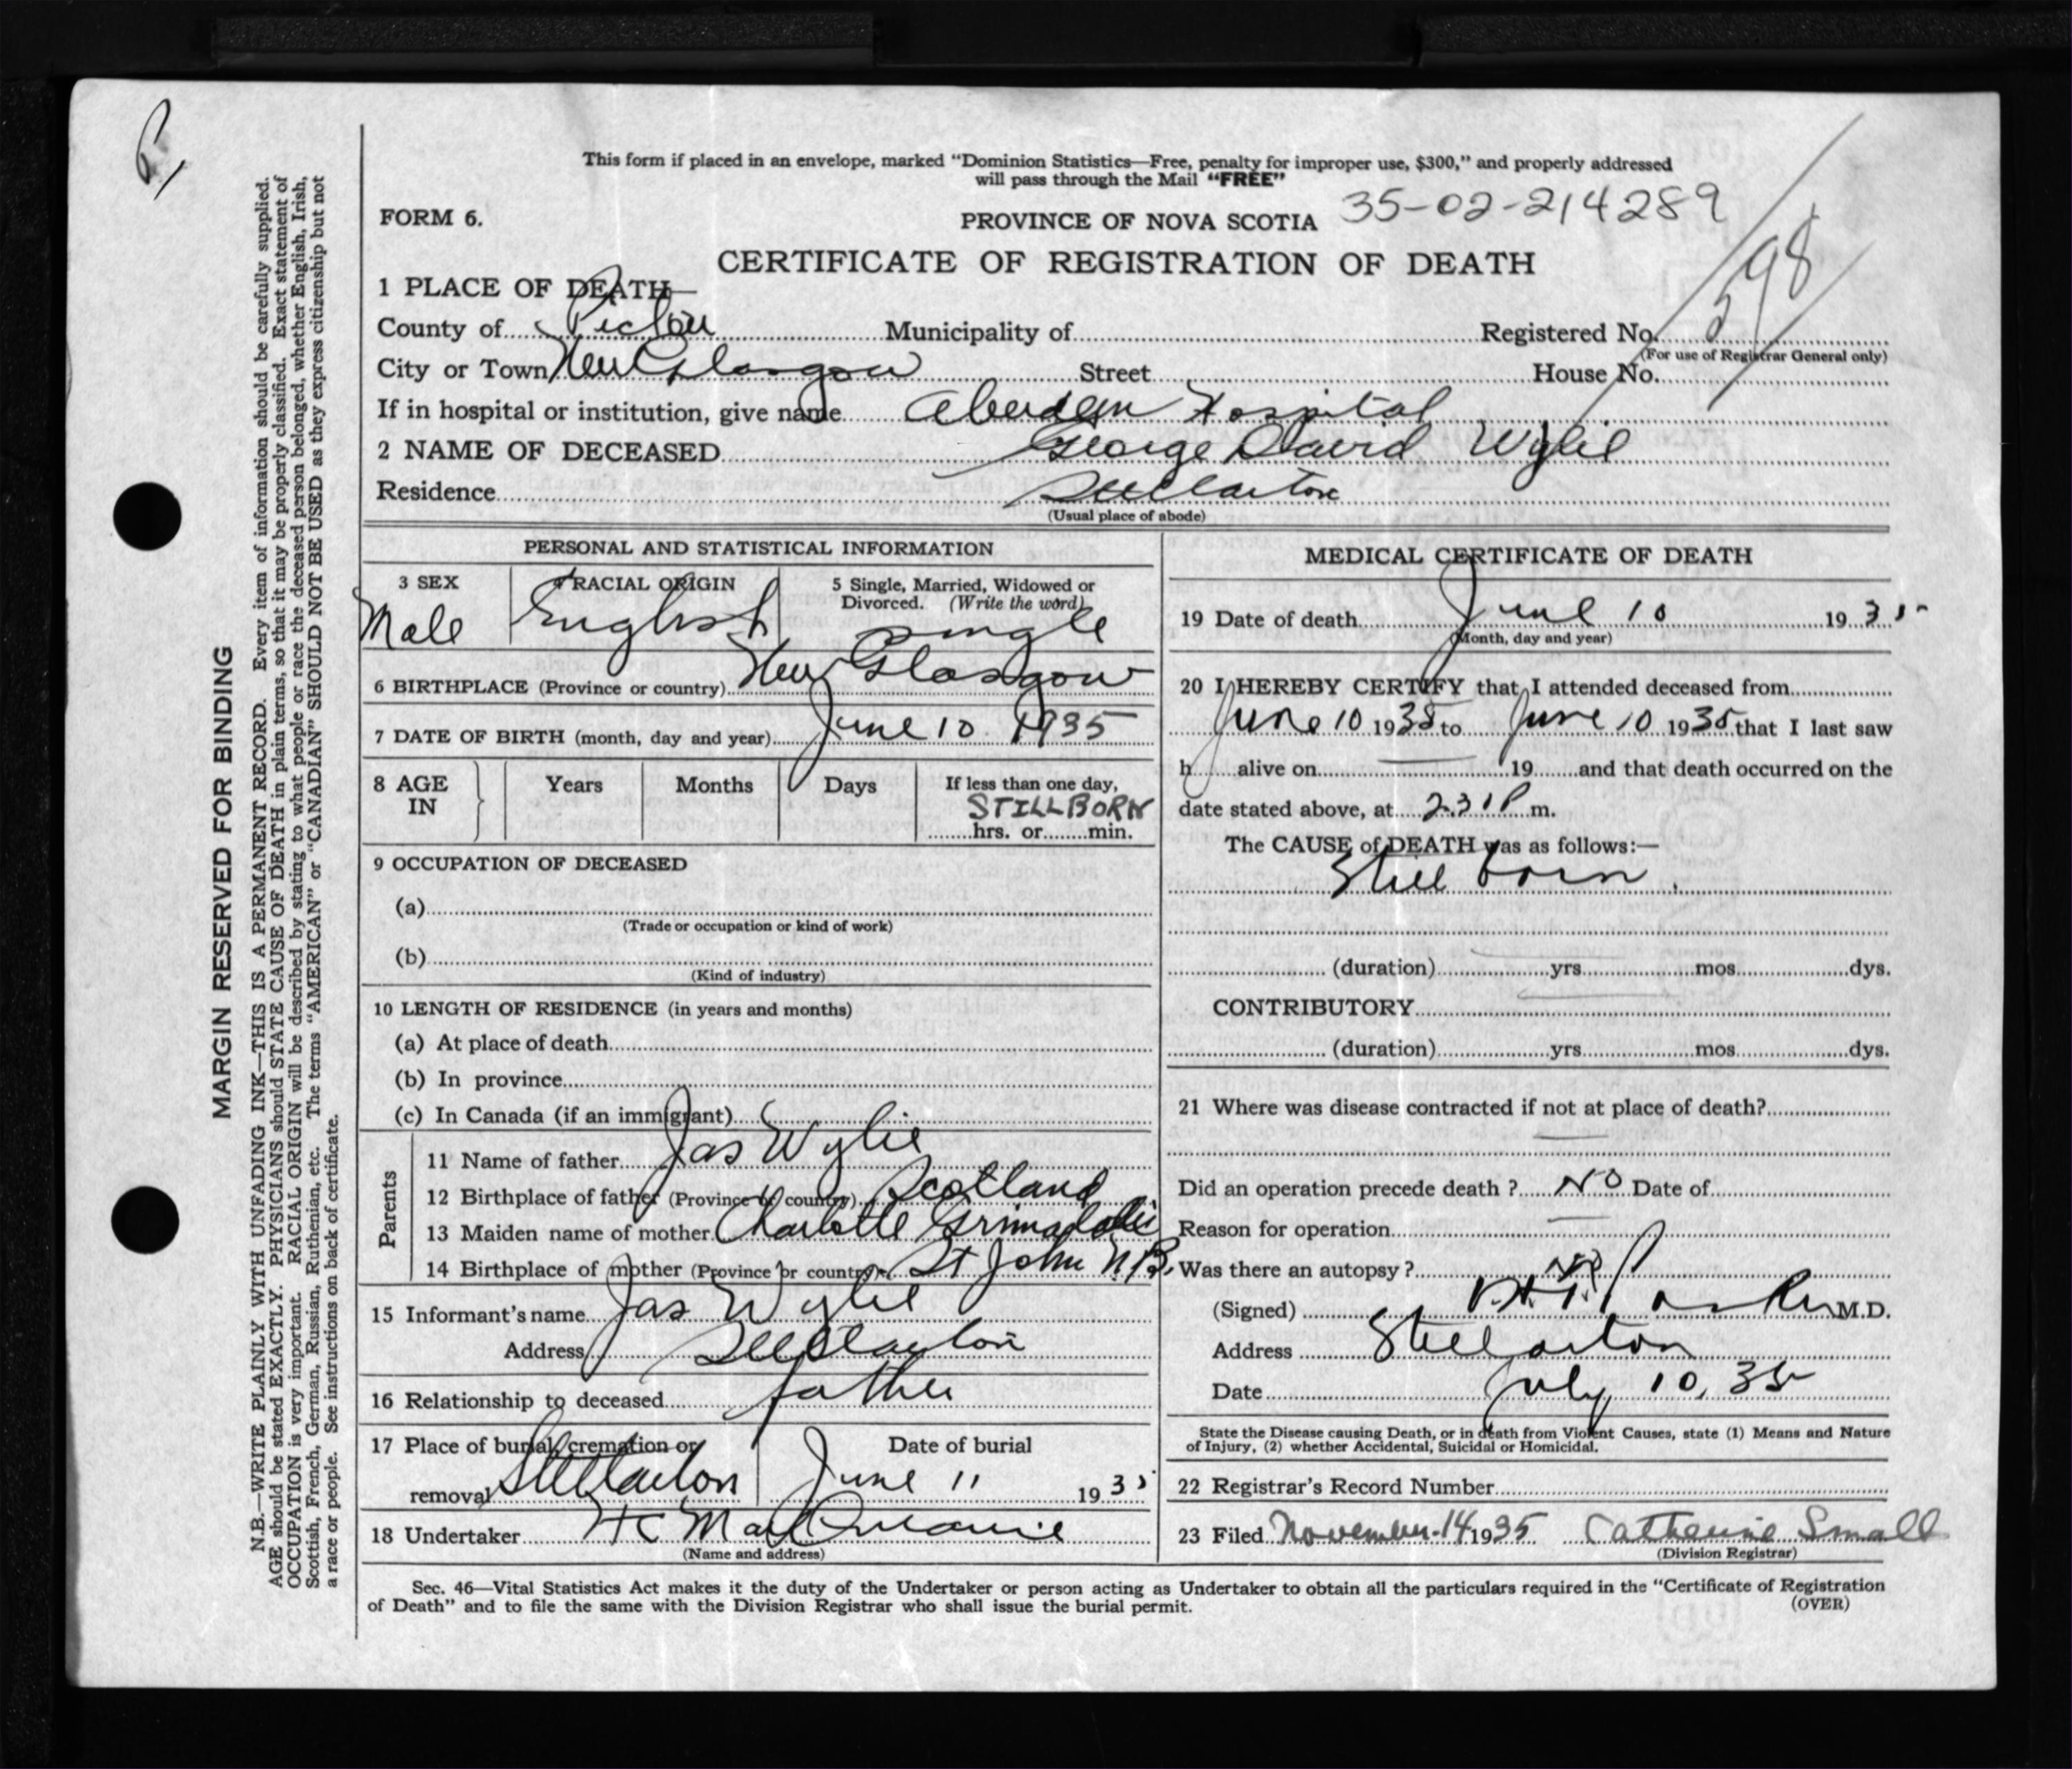 This form if placed in an envelope, marked "Dominion Statistics—Free, penalty for improper use, $300," and properly addressed
will pass through the Mail "FREE"
FORM 6.
PROVINCE OF NOVA SCOTIA 35-02-214289
CERTIFICATE OF REGISTRATION OF DEATH
1 PLACE OF DEATH—
County of Pictou Municipality of Registered No. 598
(For use of Registrar General only)
City or Town New Glasgow Street House No.
If in hospital or institution, give name Aberdeen Hospital
2 NAME OF DECEASED George David Wylie
Residence Stellarton
(Usual place of abode)
PERSONAL AND STATISTICAL INFORMATION
3 SEX 4 RACIAL ORIGIN 5 Single, Married, Widowed or
Divorced. (Write the word)
Male English single
6 BIRTHPLACE (Province or country) New Glasgow
7 DATE OF BIRTH (month, day and year) June 10 1935
8 AGE IN Years Months Days If less than one day,
STILLBORN
hrs. or min.
9 OCCUPATION OF DECEASED
(a)
(Trade or occupation or kind of work)
(b)
(Kind of industry)
10 LENGTH OF RESIDENCE (in years and months)
(a) At place of death
(b) In province
(c) In Canada (if an immigrant)
Parents
11 Name of father Jas Wylie
12 Birthplace of father (Province or country) Scotland
13 Maiden name of mother Charlotte
14 Birthplace of mother (Province or country) St John N.B.
15 Informant's name Jas Wylie
Address Stellarton
16 Relationship to deceased father
17 Place of burial, cremation or Date of burial
removal Stellarton June 11 1935
18 Undertaker H C
(Name and address)
MEDICAL CERTIFICATE OF DEATH
19 Date of death June 10 1935
(Month, day and year)
20 I HEREBY CERTIFY that I attended deceased from
June 10 1935 to June 10 1935 that I last saw
h alive on 19 and that death occurred on the
date stated above, at 2.31 P m.
The CAUSE of DEATH was as follows:—
Still born.
(duration) yrs mos dys.
CONTRIBUTORY
(duration) yrs mos dys.
21 Where was disease contracted if not at place of death?
Did an operation precede death? No Date of
Reason for operation
Was there an autopsy? No
(Signed) M.D.
Address Stellarton
Date July 10, 35
State the Disease causing Death, or in death from Violent Causes, state (1) Means and Nature
of Injury, (2) whether Accidental, Suicidal or Homicidal.
22 Registrar's Record Number
23 Filed November 14 1935 Catherine Small
(Division Registrar)
Sec. 46—Vital Statistics Act makes it the duty of the Undertaker or person acting as Undertaker to obtain all the particulars required in the "Certificate of Registration
of Death" and to file the same with the Division Registrar who shall issue the burial permit.
(OVER)
MARGIN RESERVED FOR BINDING
N.B.—WRITE PLAINLY WITH UNFADING INK—THIS IS A PERMANENT RECORD. Every item of information should be carefully supplied.
AGE should be stated EXACTLY. PHYSICIANS should STATE CAUSE OF DEATH in plain terms, so that it may be properly classified. Exact statement of
OCCUPATION is very important. RACIAL ORIGIN will be described by stating to what people or race the deceased person belonged, whether English, Irish,
Scottish, French, German, Russian, Ruthenian, etc. The terms "AMERICAN" or "CANADIAN" SHOULD NOT BE USED as they express citizenship but not
a race or people. See instructions on back of certificate.